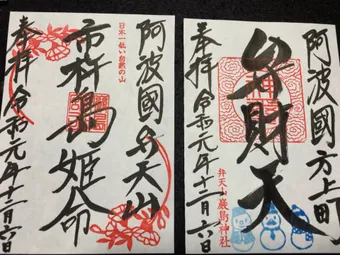 阿波國方上町
弁財天
弁天山厳島神社
奉拝 令和元年十二月六日
阿波國弁天山
日本一低い自然の山
市杵島姫命
奉拝 令和元年十二月六日